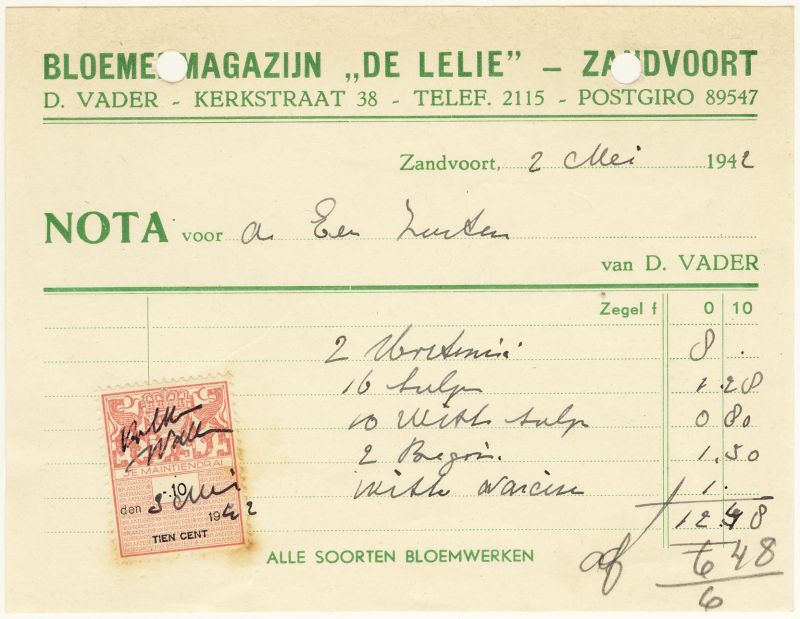 BLOEMENMAGAZIJN „DE LELIE” – ZANDVOORT
D. VADER - KERKSTRAAT 38 - TELEF. 2115 - POSTGIRO 89547
Zandvoort, 2 Mei 1942
NOTA voor
van D. VADER
Zegel f 0 10
2 8 .
16 tulp 1.28
10 witte tulp 0 80
2 1.50
witte narcisse 1.
12.48
af 6 48
6
JE MAINTIENDRAI
.10
den 3 Mei
1942
TIEN CENT
ALLE SOORTEN BLOEMWERKEN